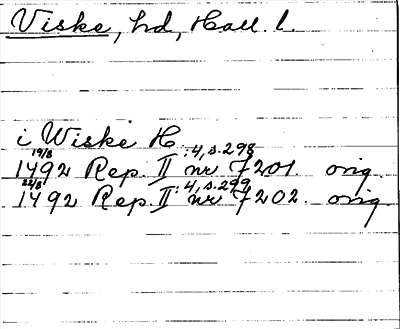 Viske, hd, Hall. l.
i Wiske H
19/8 :4, s.298
1492 Rep. II nr 7201. orig.
22/8 :4, s.299
1492 Rep. II nr 7202. orig